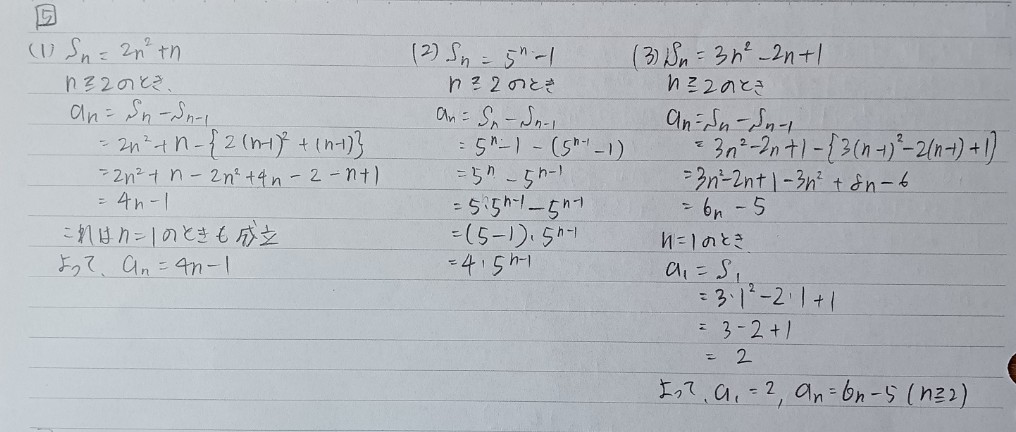 5
(1) Sn = 2n² + n
n≧2のとき、
an = Sn - Sn-1
= 2n² + n - {2(n-1)² + (n-1)}
= 2n² + n - 2n² + 4n - 2 - n + 1
= 4n - 1
これはn=1のときも成立
よって、an = 4n - 1
(2) Sn = 5ⁿ - 1
n≧2のとき
an = Sn - Sn-1
= 5ⁿ - 1 - (5ⁿ⁻¹ - 1)
= 5ⁿ - 5ⁿ⁻¹
= 5・5ⁿ⁻¹ - 5ⁿ⁻¹
= (5-1)・5ⁿ⁻¹
= 4・5ⁿ⁻¹
(3) Sn = 3n² - 2n + 1
n≧2のとき
an = Sn - Sn-1
= 3n² - 2n + 1 - {3(n-1)² - 2(n-1) + 1}
= 3n² - 2n + 1 - 3n² + 8n - 6
= 6n - 5
n=1のとき
a₁ = S₁
= 3・1² - 2・1 + 1
= 3 - 2 + 1
= 2
よって、a₁ = 2, an = 6n - 5 (n≧2)